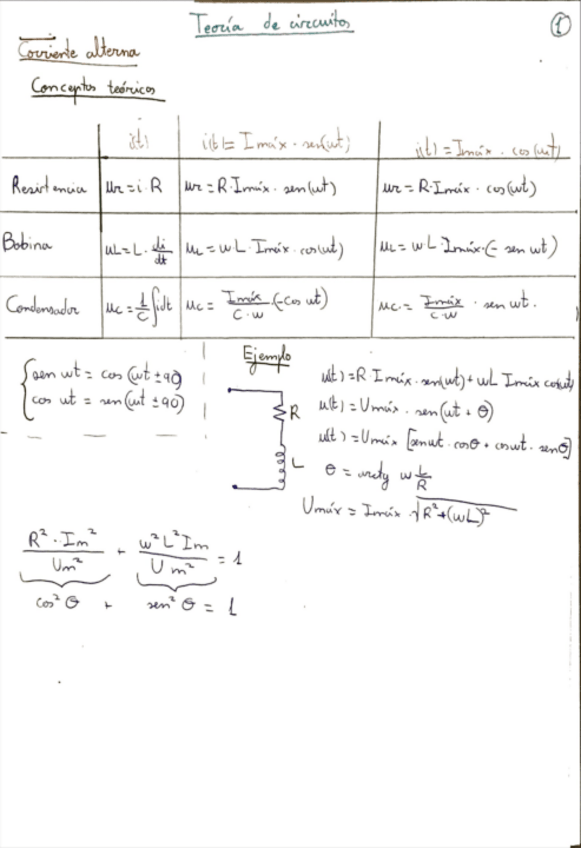 Teoría de circuitos
1
Corriente alterna
Conceptos teóricos
i(t) i(t) = Imáx · sen(wt) i(t) = Imáx · cos(wt)
Resistencia ur = i · R ur = R · Imáx · sen(wt) ur = R · Imáx · cos(wt)
Bobina uL = L · di/dt uL = wL · Imáx · cos(wt) uL = wL · Imáx · (- sen wt)
Condensador uc = 1/C ∫idt uc = Imáx/C·w · (-cos wt) uc = Imáx/C·w · sen wt.
sen wt = cos (wt ± 90)
cos wt = sen (wt ± 90)
Ejemplo
R
L
u(t) = R · Imáx · sen(wt) + wL Imáx cos(wt)
u(t) = Umáx · sen(wt + θ)
u(t) = Umáx [senwt · cosθ + coswt · senθ]
θ = arctg w L/R
Umáx = Imáx · √R² + (wL)²
R² · Im²/Um² + w² L² Im/Um² = 1
cos² θ + sen² θ = 1